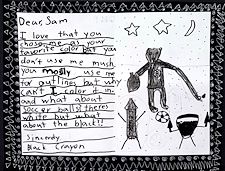 Dear Sam
I love that you
chose me as your
favorite color but you
don't use me mush
you mostly use me
for outlines but why
CAn't I color it in
and what about
soccer balls! theres
white but what
about the black!!
Sincerely
Black Crayon